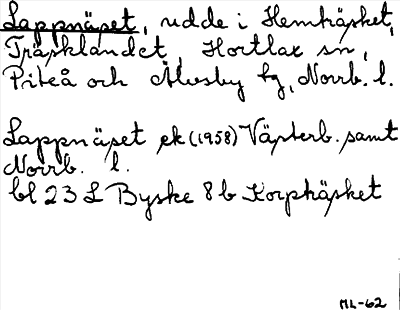 Lappnäset, udde i Hemträsket,
Träsklandet, Hortlax sn,
Piteå och Älvsby tg, Norrb. l.
Lappnäset ek (1958) Västerb. samt
Norrb. l.
bl 23 L Byske 8 b Korpträsket
ML-62